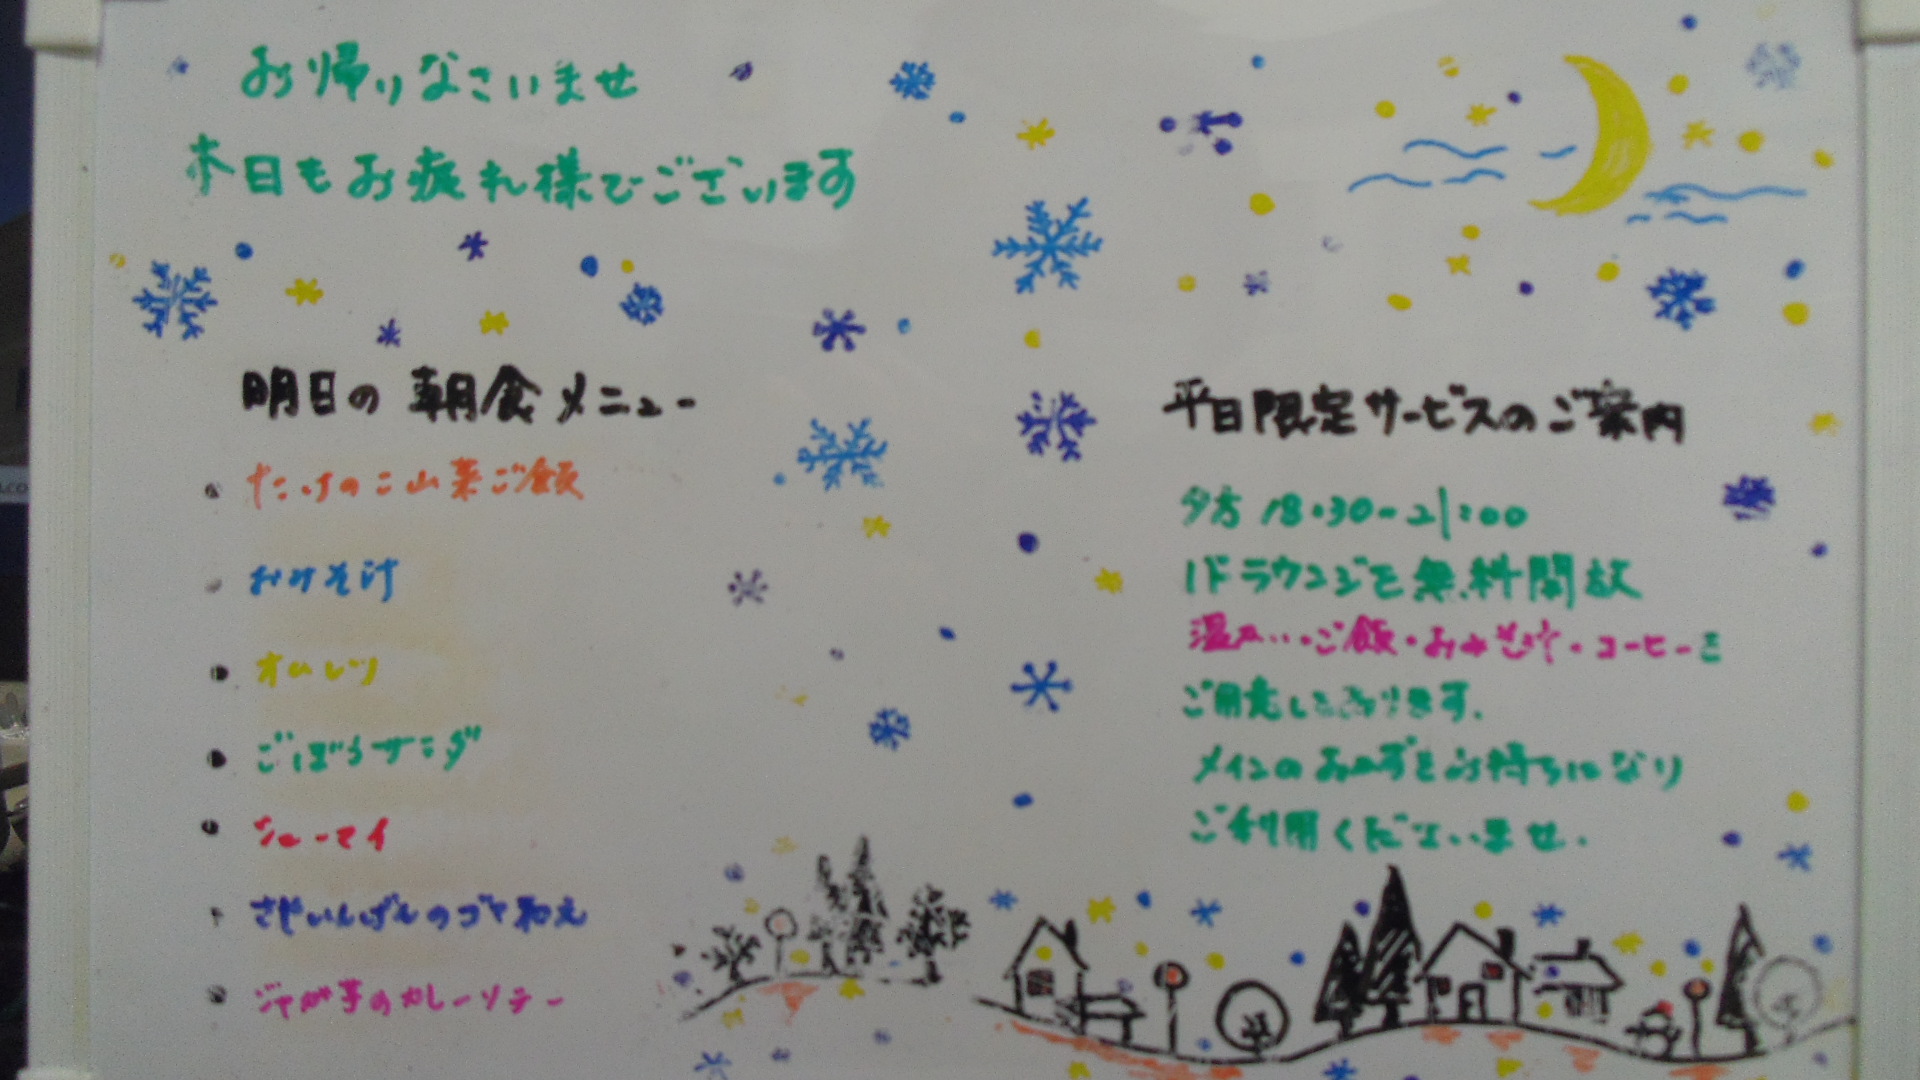 お帰りなさいませ
本日もお疲れ様でございます
明日の朝食メニュー
たけのこ山菜ご飯
おみそ汁
オムレツ
ごぼうサラダ
シューマイ
さやいんげんのゴマ和え
ジャガ芋のカレーソテー
平日限定サービスのご案内
夕方 18:30-21:00
1Fラウンジを無料開放
温かい・ご飯・おみそ汁・コーヒーを
ご用意しております。
メインのおかずをお持ちになり
ご利用くださいませ。